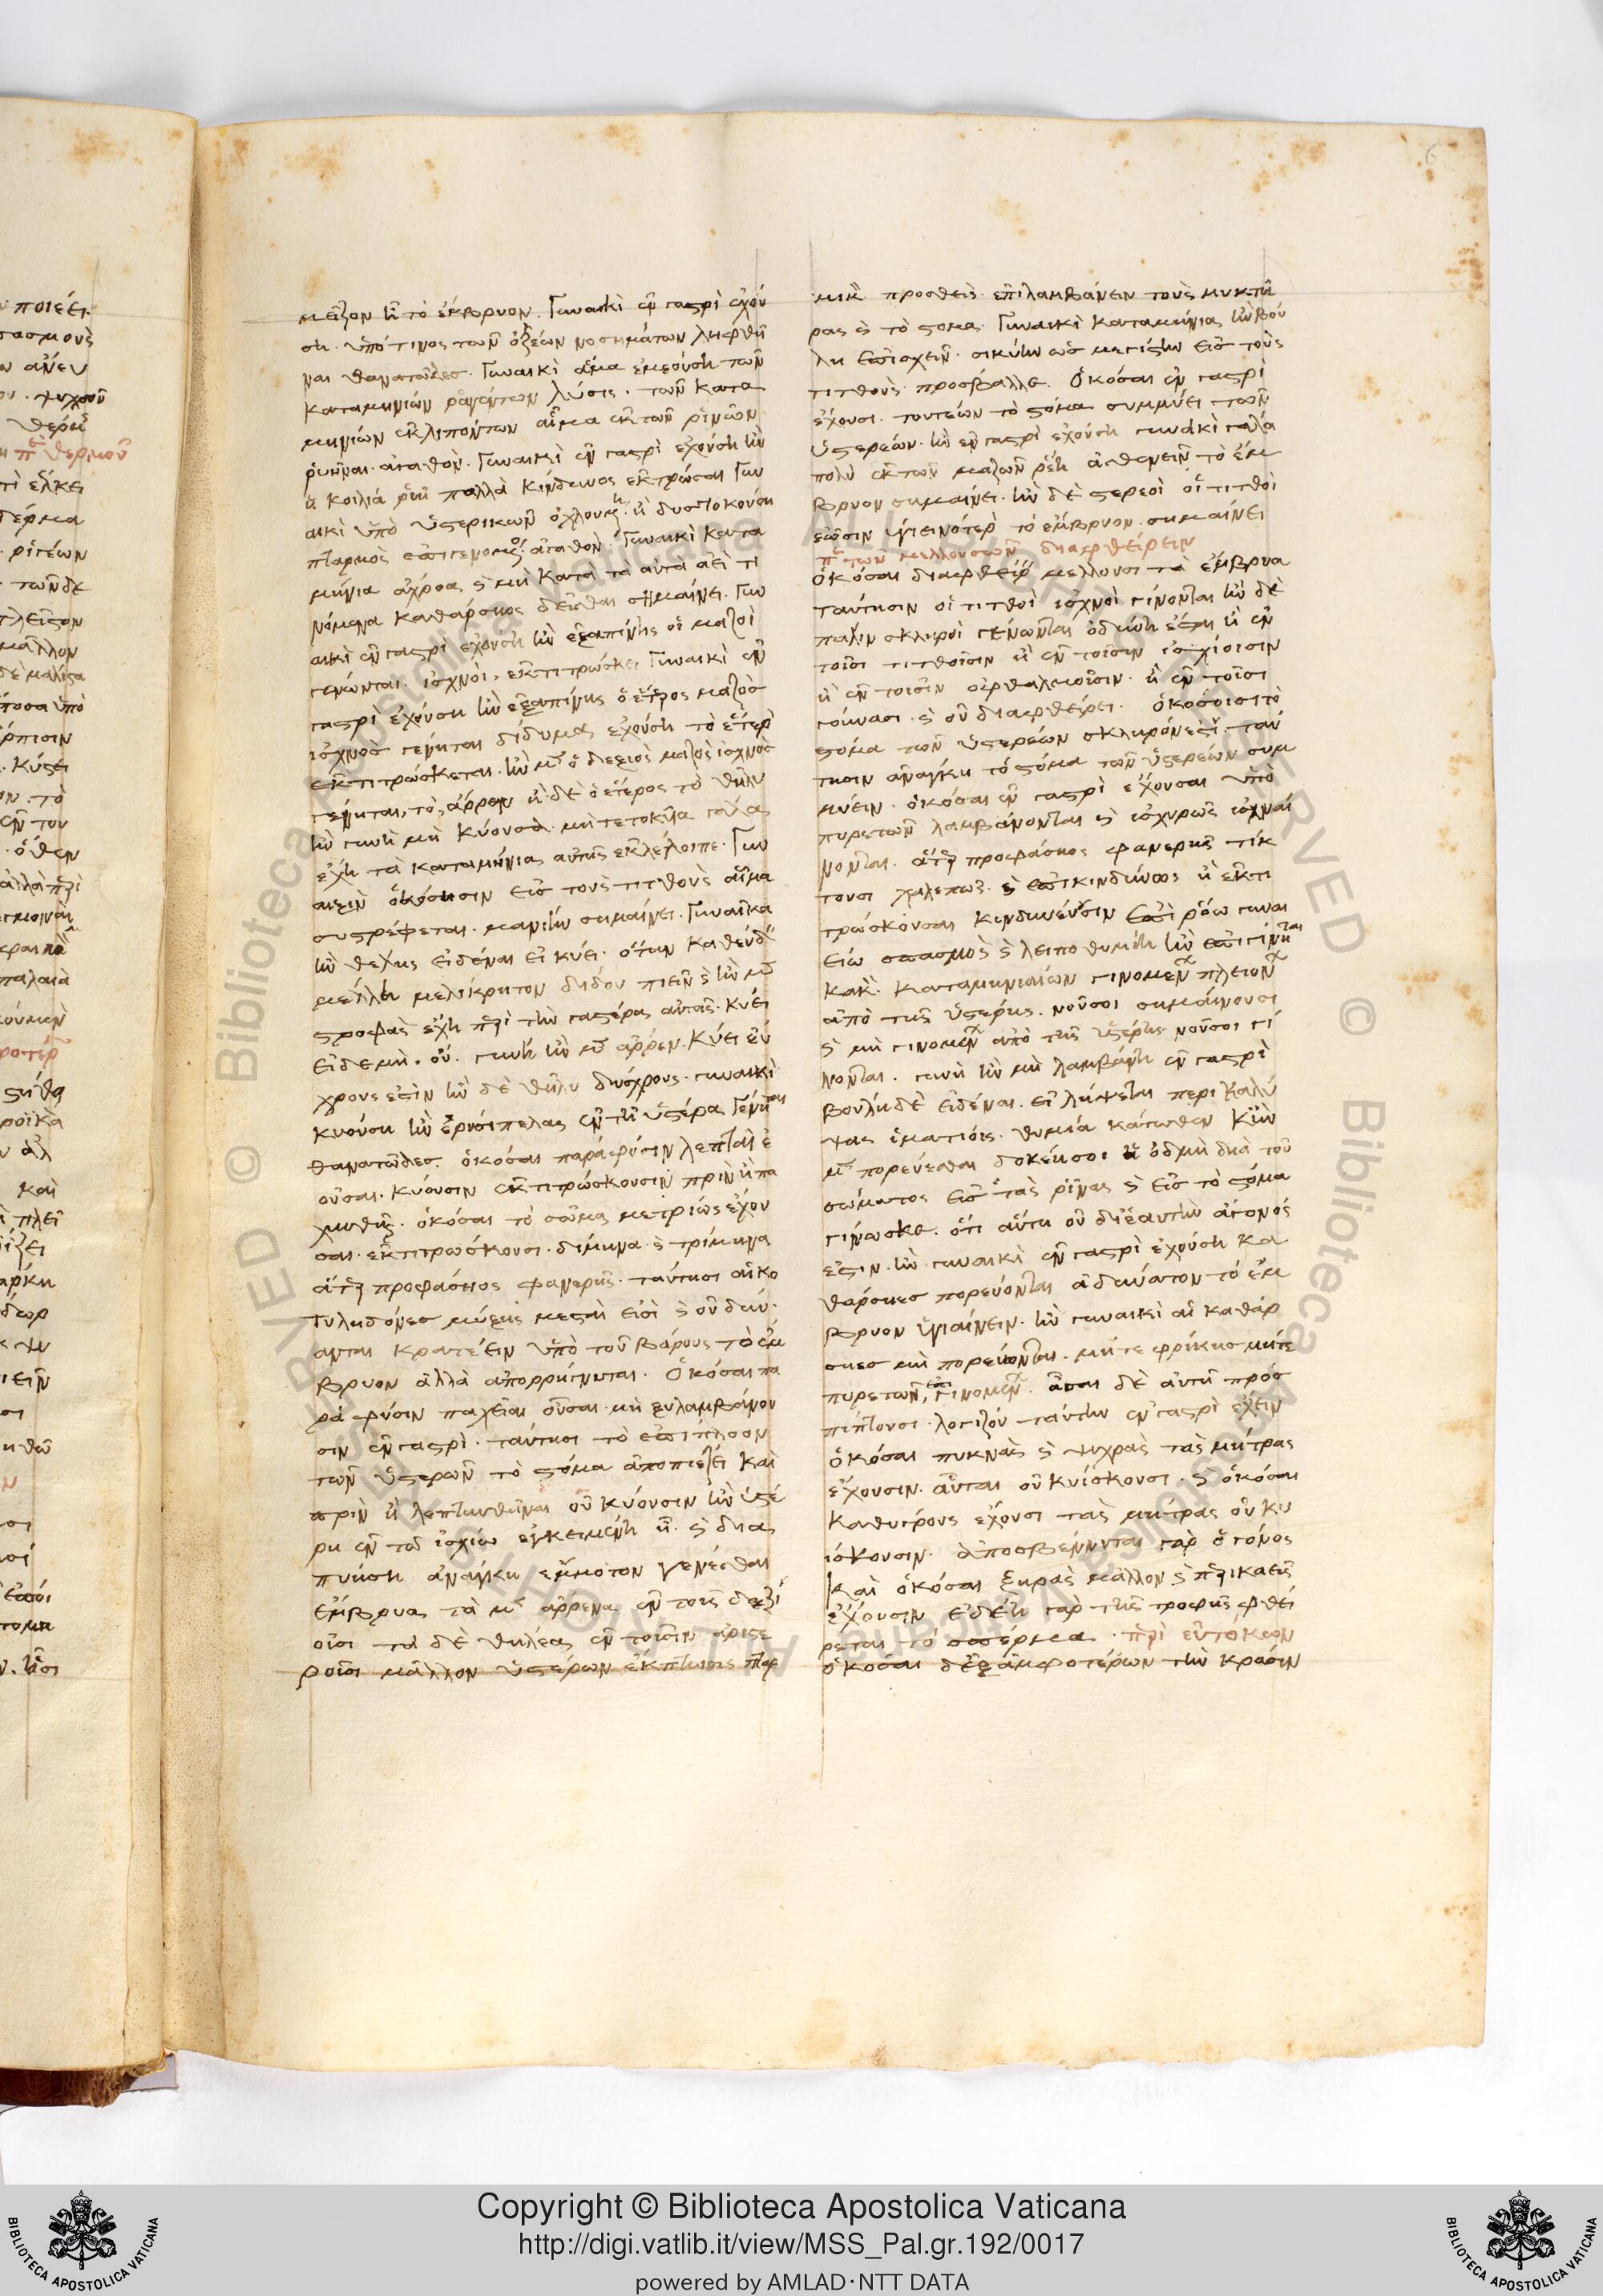 μεῖζον ἦ τὸ ἔμβρυον. Γυναικὶ ἐν γαστρὶ ἐχού
ση. ὑπό τινος τῶν ὀξέων νοσημάτων ληφθῆ
ναι θανατῶδες. Γυναικὶ αἷμα ἐμεούση τῶν
καταμηνιών ραγέντων λύσις. τῶν κατα
μηνίων ἐκλιπόντων αἷμα ἐκ τῶν ρινῶν
ρυῆναι. ἀγαθὸν. Γυναικὶ ἐν γαστρὶ ἐχούση ἢν
ἡ κοιλιά ρυῆ πολλὰ κίνδυνος ἐκτρῶσαι Γυν
αικὶ ὑπὸ ὑστερικῶν ὀχλουμένη. ἢ δυστοκούση
πταρμὸς ἐπιγενόμενος ἀγαθὸν. Γυναικὶ κατα
μήνια ἄχροα, ϗ μὴ κατὰ τὰ αὐτὰ ἀεὶ γι
νόμενα καθάρσιος δεῖσθαι σημαίνει. Γυν
αικὶ ἐν γαστρὶ ἐχούση ἢν ἐξαπίνης οἱ μαζοὶ
γένωνται. ἰσχνοὶ. ἐκτιτρώσκει Γυναικὶ ἐν
γαστρὶ ἐχούση ἢν ἐξαπίνης ὁ ἕτερος μαζὸς
ἰσχνὸς γένηται δίδυμα ἐχούση τὸ ἕτερον
ἐκτιτρώσκεται. ἢν μὲν ὁ δεξιὸς μαζὸς ἰσχνὸς
γένηται, τὸ ἄρρεν ἢ δὲ ὁ ἕτερος τὸ θῆλυ
ἢν γυνὴ μὴ κύουσα. μὴ τετοκῦια γάλα
ἔχη τὰ καταμήνια αὐτῆς ἐκλέλοιπε. Γυν
αιξὶν ὁκόσησιν εἰς τοὺς τιτθοὺς αἷμα
συστρέφεται. μανίην σημαίνει. Γυναῖκα
ἢν θέλης εἰδέναι εἰ κύει. ὅτην καθεύδειν
μέλλη μελίκρητον διδου πιεῖν ϗ ἢν μὲν
στροφὰς ἔχη περὶ τὴν γαστέρα αὐτᾶς. κύει
εἰ δε μὴ. οὔ. γυνὴ ἢν μὲν ἄρρεν. κύει εὔ
χρους ἐστὶν ἢν δὲ θῆλυ δύσχρους. γυναικὶ
κυούση ἢν ἐρυσίπελας ἐν τῆ ὑστέρα γένηται
θανατῶδες. ὁκόσαι παρὰ φύσιν λεπταὶ ἐ
οῦσαι. κύουσιν ἐκτιτρώσκουσιν πρὶν ἢ πα
χυθῆς. ὁκόσαι τὸ σῶμα μετρίως ἔχου
σαι. ἐκτιτρωσκουσι. δίμηνα. ϗ τρίμηνα
ἄτερ προφάσιος φανερῆς. ταύτησι αἱ κο
τυληδόνες μύξης μεσταὶ εἰσὶ ϗ οὐ δύν.
ανται κρατέειν ὑπὸ τοῦ βάρους τὸ ἔμ
βρυον ἀλλὰ ἀπορρήγνυται. Ὁκόσαι πα
ρὰ φύσιν παχεῖαι οῦσαι. μὴ ξυλαμβάνου
σιν ἐν γαστρὶ. ταύτησι τὸ ἐπίπλοον
τῶν ὑστερῶν τὸ στόμα ἀποπιέζει καὶ
πρὶν ἢ λεπτυνθῆναι οὐ κύουσιν ἢν ὑστέ
ρη ἐν τῶ ἰσχίω ἐγκειμένη ἦ. ϗ δια
πυήση ἀνάγκη ἔμμοτον γενέσθαι
Ἔμβρυα τὰ μὲν ἄρρενα ἐν τοῖς δεξι
οῖσι τὰ δὲ θηλέα ἐν τοῖσιν ἀριστε
ροῖσι μᾶλλον ὑστέρων ἐκπτωσις πταρ
μικὸν προσθεὶς ἐπιλαμβάνειν τοὺς μυκτῆ
ρας ϗ τὸ στομα. Γυναικὶ καταμήνια ἢν βού
λη ἐπισχεῖν. σικύην ὡς μεγίστην εἰς τοὺς
τιτθοὺς προσβαλλε. Ὁκόσαι ἐν γαστρὶ
ἔχουσι. τουτέων τὸ στόμα συμμύει τῶν
ὑστερέων. ἢν ἐν γαστρὶ ἐχούση γυναικὶ γάλα
πολὺ ἐκ τῶν μαζῶν ρέη ἀσθενεῖν τὸ ἔμ
βρυον σημαίνει. ἢν δὲ στερεοὶ οἱ τιτθοὶ
ἐῶσιν ὑγιεινότερον τὸ ἔμβρυον. σημαίνει
περὶ τῶν μελλουσῶν διαφθείρειν
ὁκόσαι διαφθείρειν μέλλουσι τὰ ἔμβρυα
ταύτησιν οἱ τιτθοὶ ἰσχνοὶ γίνονται ἢν δὲ
πάλιν σκληροὶ γένωνται ὀδύνη ἔσται ἢ ἐν
τοῖσι τιτθοῖσιν ἢ ἐν τοῖσιν ἰσχίοισιν
ἢ ἐν τοῖσιν ὀφθαλμοῖσιν. ἢ ἐν τοῖσι
γούνασι. ϗ οὐ διαφθείρει. ὁκόσοισι τὸ
στόμα τῶν ὑστερέων σκληρόν ἐστι. ταύ
τησιν ἀνάγκη τὸ στόμα τῶν ὑστερέων συμ
μύειν. ὁκόσαι ἐν γαστρὶ ἔχουσαι ὑπὸ
πυρετῶν λαμβάνονται ϗ ἰσχυρῶς ἰσχναί
νονται. ἄτερ προφάσιος φανερῆς τίκ
τουσι χαλεπῶς. ϗ ἐπικινδύνως ἢ ἐκτι
τρώσκουσαι κινδυνεύουσιν Ἐπὶ ρόω γυναι
είω σπασμὸς ϗ λειποθυμίη ἢν ἐπιγένηται
κακὸν. καταμηνιαίων γινομένων πλειόνων
ἀπὸ τῆς ὑστέρης. νοῦσοι σημαίνουσι
ϗ μὴ γινομένων ἀπὸ τῆς ὑστέρης νοῦσοι γί
νονται. γυνὴ ἢν μὴ λαμβάνη ἐν γαστρὶ
βούλη δὲ εἰδέναι. εἰ λήψεται περικαλύ
ψας ἱματίοις. θυμία κάτωθεν κἢν
μὲν πορεύεσθαι δοκέη σοι ἡ ὀδμὴ διὰ τοῦ
σώματος εἰς τὰς ρῖνας ϗ εἰς τὸ στόμα
γίνωσκε. ὅτι αὕτη οὐ δι' ἑαυτὴν ἄγονός
ἐστιν. ἢν γυναικὶ ἐν γαστρὶ ἐχούση κα
θάρσιες πορεύονται ἀδύνατον τὸ ἔμ
βρυον ὑγιαίνειν. ἢν γυναικὶ αἱ καθάρ
σιες μὴ πορεύονται. μήτε φρίκης μήτε
πυρετῶν, ἐπιγινομένων. ἄσαι δὲ αὐτῆ πρόσ
πίπτουσι. λογίζου ταύτην ἐν γαστρὶ ἔχειν
ὁκόσαι πυκνὰς ϗ ψυχρὰς τὰς μήτρας
ἔχουσιν. αὗται οὐ κυίσκουσι. ϗ ὁκόσαι
καθύγρους ἔχουσι τὰς μήτρας οὐ κυ
ίσκουσιν. ἀποσβέννυται γὰρ ὁ γόνος
Καὶ ὁκόσαι ξηρὰς μᾶλλον ϗ περικαεῖς
ἔχουσιν ἐνδέη γὰρ τῆς τροφῆς φθεί
ρεται τὸ σπέρμα. περὶ εὐτόκων
ὁκόσαι δὲ ἐξ ἀμφοτέρων τὴν κρᾶσιν
Copyright © Biblioteca Apostolica Vaticana
http://digi.vatlib.it/view/MSS_Pal.gr.192/0017
powered by AMLAD·NTT DATA